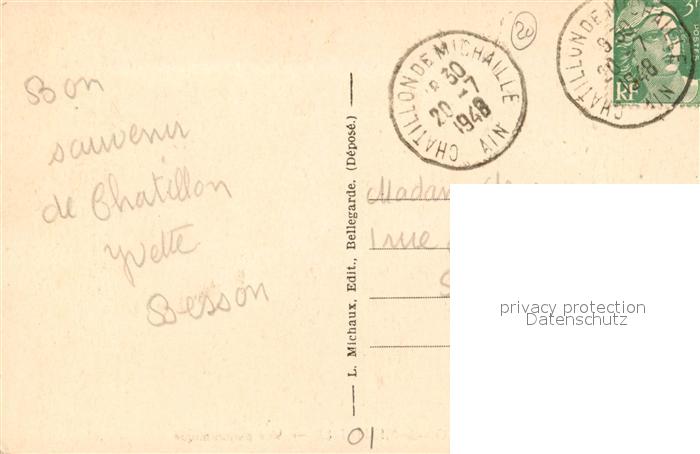 Bon
sauvenir
de Chatillon
Yvette
Besson
L. Michaux, Edit., Bellegarde. (Déposé.)
CHATILLON DE MICHAILLE
30
20 - 7
1948
AIN
CHATILLON DE MICHAILLE
30
20 - 7
1948
AIN
RF
Madame
1 rue
01
privacy protection
Datenschutz